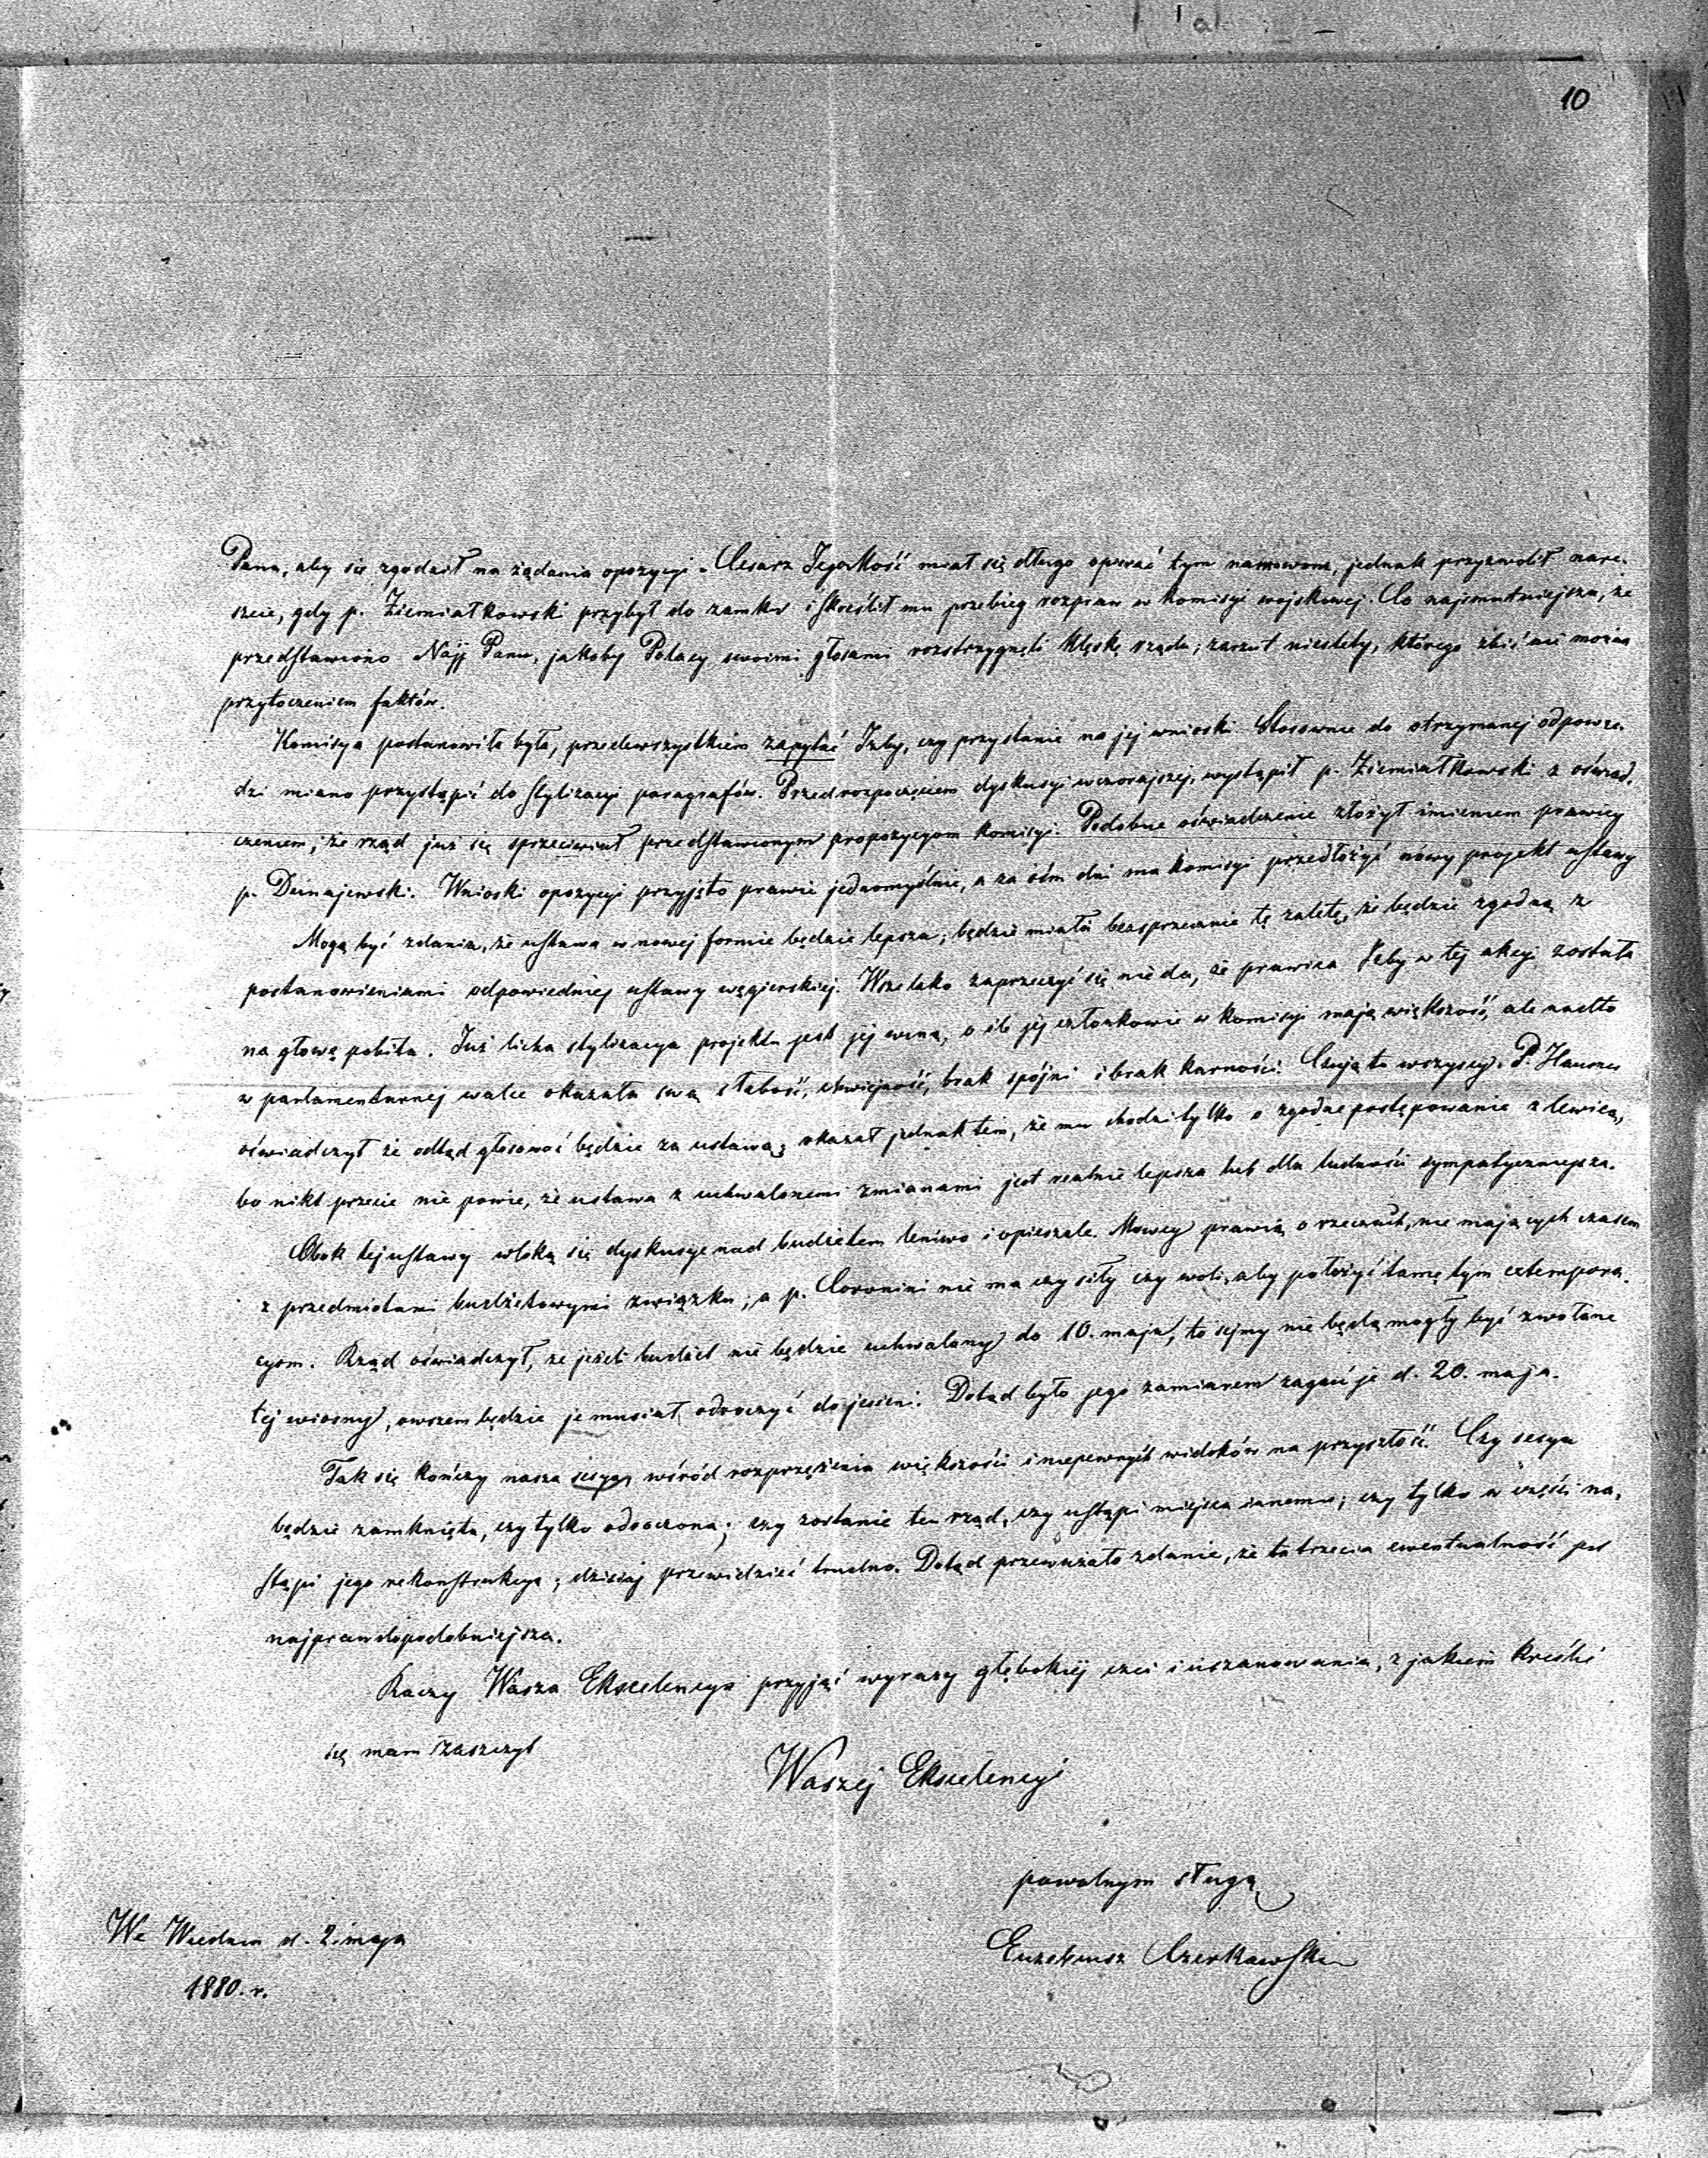 10
Pana, aby się zgodził na żądania opozycyi. Cesarz Jegomość miał się długo opierać tym namowom, jednak przyzwolił nare-
szcie, gdy p. Ziemiałkowski przybył do zamku i skreślił mu przebieg rozpraw w komisyi wojskowej. Co najsmutniejsza, że
przedstawiono Najj Panu, jakoby Polacy swoimi głosami rozstrzygnęli klęskę rządu; zarzut niestety, którego zbić nie można
przytoczeniem faktów.
Komisya postanowiła była, przedewszystkiem zapytać Izby, czy przystanie na jej wnioski. Stosownie do otrzymanej odpowie-
dzi miano przystąpić do stylizacyi paragrafów. Przed rozpoczęciem dyskusyi wczorajszej, wystąpił p. Ziemiałkowski z oświad-
czeniem, że rząd już się sprzeciwiał przedstawionym propozycyom komisyi. Podobne oświadczenie złożył imieniem prawicy
p. Dunajewski. Wnioski opozycyi przyjęto prawie jednomyślnie, a za ośm dni ma komisyi przedłożyć nowy projekt ustawy
Mogą być zdania, że ustawa w nowej formie będzie lepsza; będzie miała bezsprzecznie tę zaletę, że będzie zgodną z
postanowieniami odpowiedniej ustawy węgierskiej. Wszelako zaprzeczyć się nie da, że prawica Izby w tej akcyi została
na głowę pobita. Już licha stylizacya projektu jest jej winą, o ile jej członkowie w komisyi mają większość, ale nadto
w parlamentarnej walce okazała swą słabość, chwiejność, brak spójni i brak karności. Czują to wszyscy. P. Hausner
oświadczył że odtąd głosować będzie za ustawą; okazał jednak tem, że mu chodzi tylko o zgodne postępowanie z lewicą,
bo nikt przecie nie powie, że ustawa z uchwalonemi zmianami jest realnie lepsza lub dla ludności sympatyczniejsza.
Obok tej ustawy wloką się dyskusye nad budżetem leniwo i opieszale. Mowcy prawią o rzeczach, nie mających czasem
z przedmiotami budżetowymi związku; a p. Coronini nie ma czy siły czy woli, aby położyć tamę tym extempora-
cyom. Rząd oświadczył, że jeżeli budżet nie będzie uchwalony do 10. maja, to sejmy nie będą mogły być zwołane
tej wiosny, owszem będzie je musiał odroczyć do jesieni. Dotąd było jego zamiarem zagaić je d. 20. maja.
Tak się kończy nasza sesya, wśród rozprzężenia większości i niepewnych widoków na przyszłość. Czy sesya
będzie zamknięta, czy tylko odroczona; czy zostanie ten rząd, czy ustąpi miejsca innemu; czy tylko w części na-
stąpi jego rekonstrukcya; dzisiaj przewidzieć trudno. Dotąd przeważało zdanie, że ta trzecia ewentualność jest
najprawdopodobniejsza.
Raczy Wasza Ekscelencya przyjąć wyrazy głębokiej czci i uszanowania, z jakiem kreślić
się mam zaszczyt
Waszej Ekscelencyi
powolnym sługą
Euzebiusz Czerkawski
We Wiedniu d. 2. maja
1880. r.